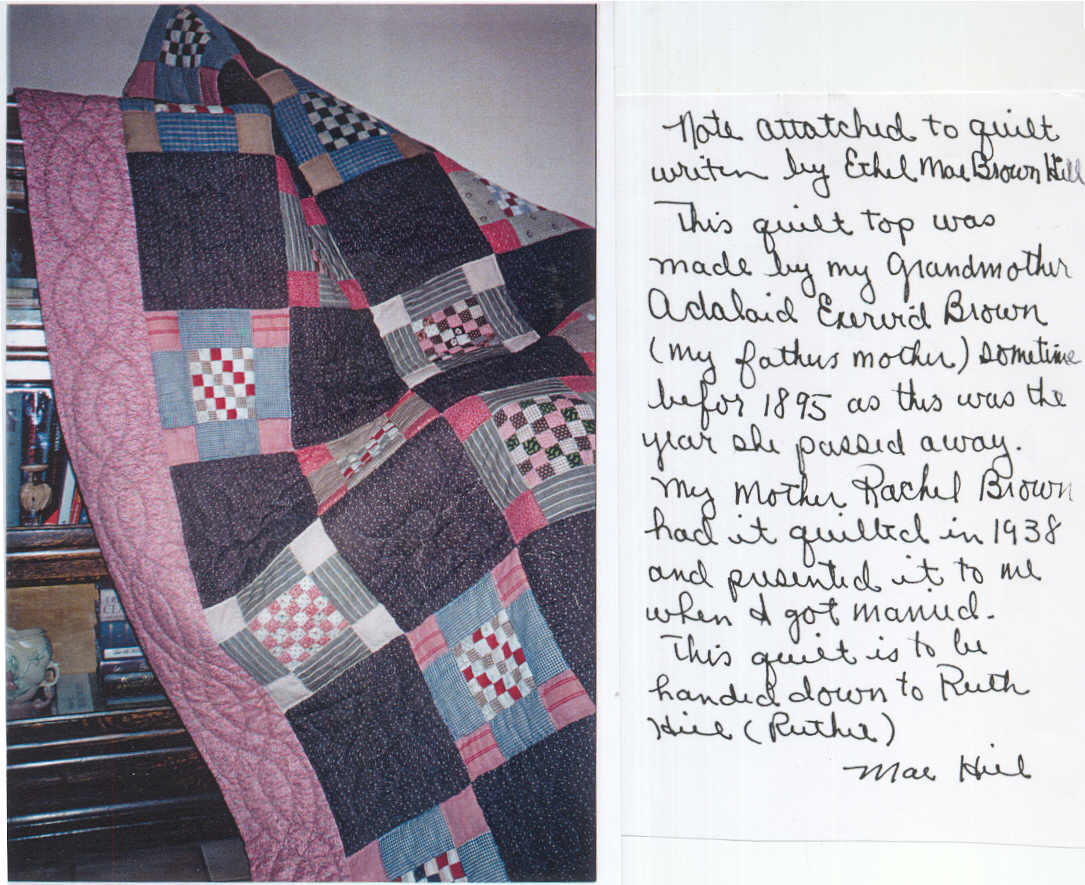 Note attatched to quilt
writen by Ethel Mae Brown Hill
This quilt top was
made by my Grandmother
Adalaid Exervid Brown
(my fathers mother) sometime
befor 1895 as this was the
year she passed away.
My Mother Rachel Brown
had it quilted in 1938
and presented it to me
when I got married.
This quilt is to be
handed down to Ruth
Hill (Ruthie)
Mae Hill